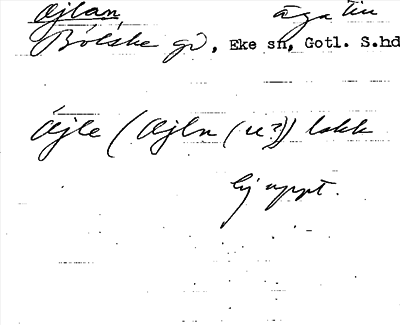 Ajlan äga till
Bölske gd, Eke sn, Gotl. S.hd
Äjle (Ajln (u?)) lokk
Ej uppt.